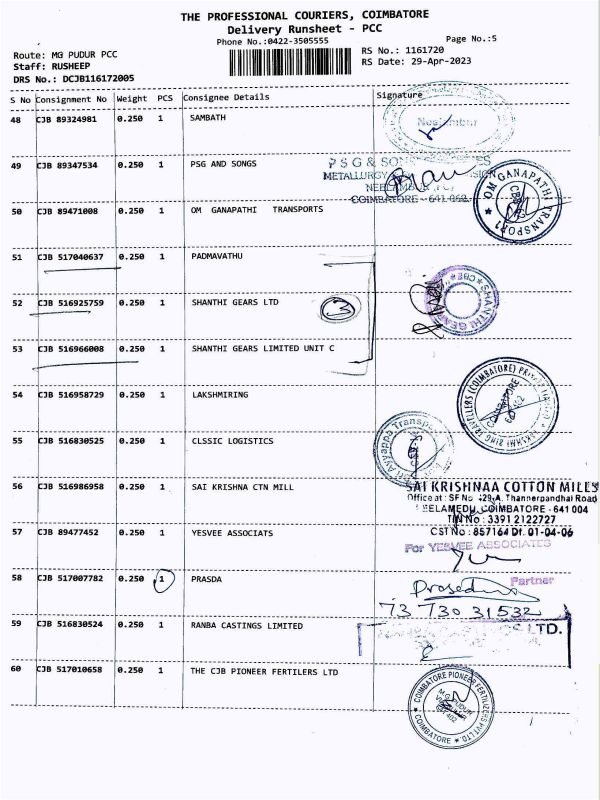 THE PROFESSIONAL COURIERS, COIMBATORE
Delivery Runsheet - PCC
Phone No.:0422-3505555
Page No.:5
Route: MG PUDUR PCC
RS No.: 1161720
Staff: RUSHEEP
RS Date: 29-Apr-2023
DRS No.: DCJB116172005
S No Consignment No Weight PCS Consignee Details Signature
48 CJB 89324981 0.250 1 SAMBATH
49 CJB 89347534 0.250 1 PSG AND SONGS
P S G & SONS
METALLURGY
COIMBATORE - 641 062.
50 CJB 89471008 0.250 1 OM GANAPATHI TRANSPORTS
OM GANAPATHI TRANSPORT
51 CJB 517040637 0.250 1 PADMAVATHU
52 CJB 516925759 0.250 1 SHANTHI GEARS LTD
3
SHANTHI GEARS CBE
53 CJB 516966008 0.250 1 SHANTHI GEARS LIMITED UNIT C
54 CJB 516958729 0.250 1 LAKSHMIRING
LAKSHMI RING TRAVELLERS (COIMBATORE)
COIMBATORE
55 CJB 516830525 0.250 1 CLSSIC LOGISTICS
Ayyappa Transport
56 CJB 516986958 0.250 1 SAI KRISHNA CTN MILL
SAI KRISHNAA COTTON MILLS
Office at : SF No 429-A, Thannerpandhal Road
COIMBATORE - 641 004
TIN No : 33912122727
CST No : 857164 Dt. 01-04-06
57 CJB 89477452 0.250 1 YESVEE ASSOCIATS
For YESVEE ASSOCIATES
Partner
58 CJB 517007782 0.250 1 PRASDA
73 730 31532
59 CJB 516830524 0.250 1 RANBA CASTINGS LIMITED
LTD.
60 CJB 517010658 0.250 1 THE CJB PIONEER FERTILERS LTD
COIMBATORE PIONEER FERTILIZERS PVT LTD.
COIMBATORE